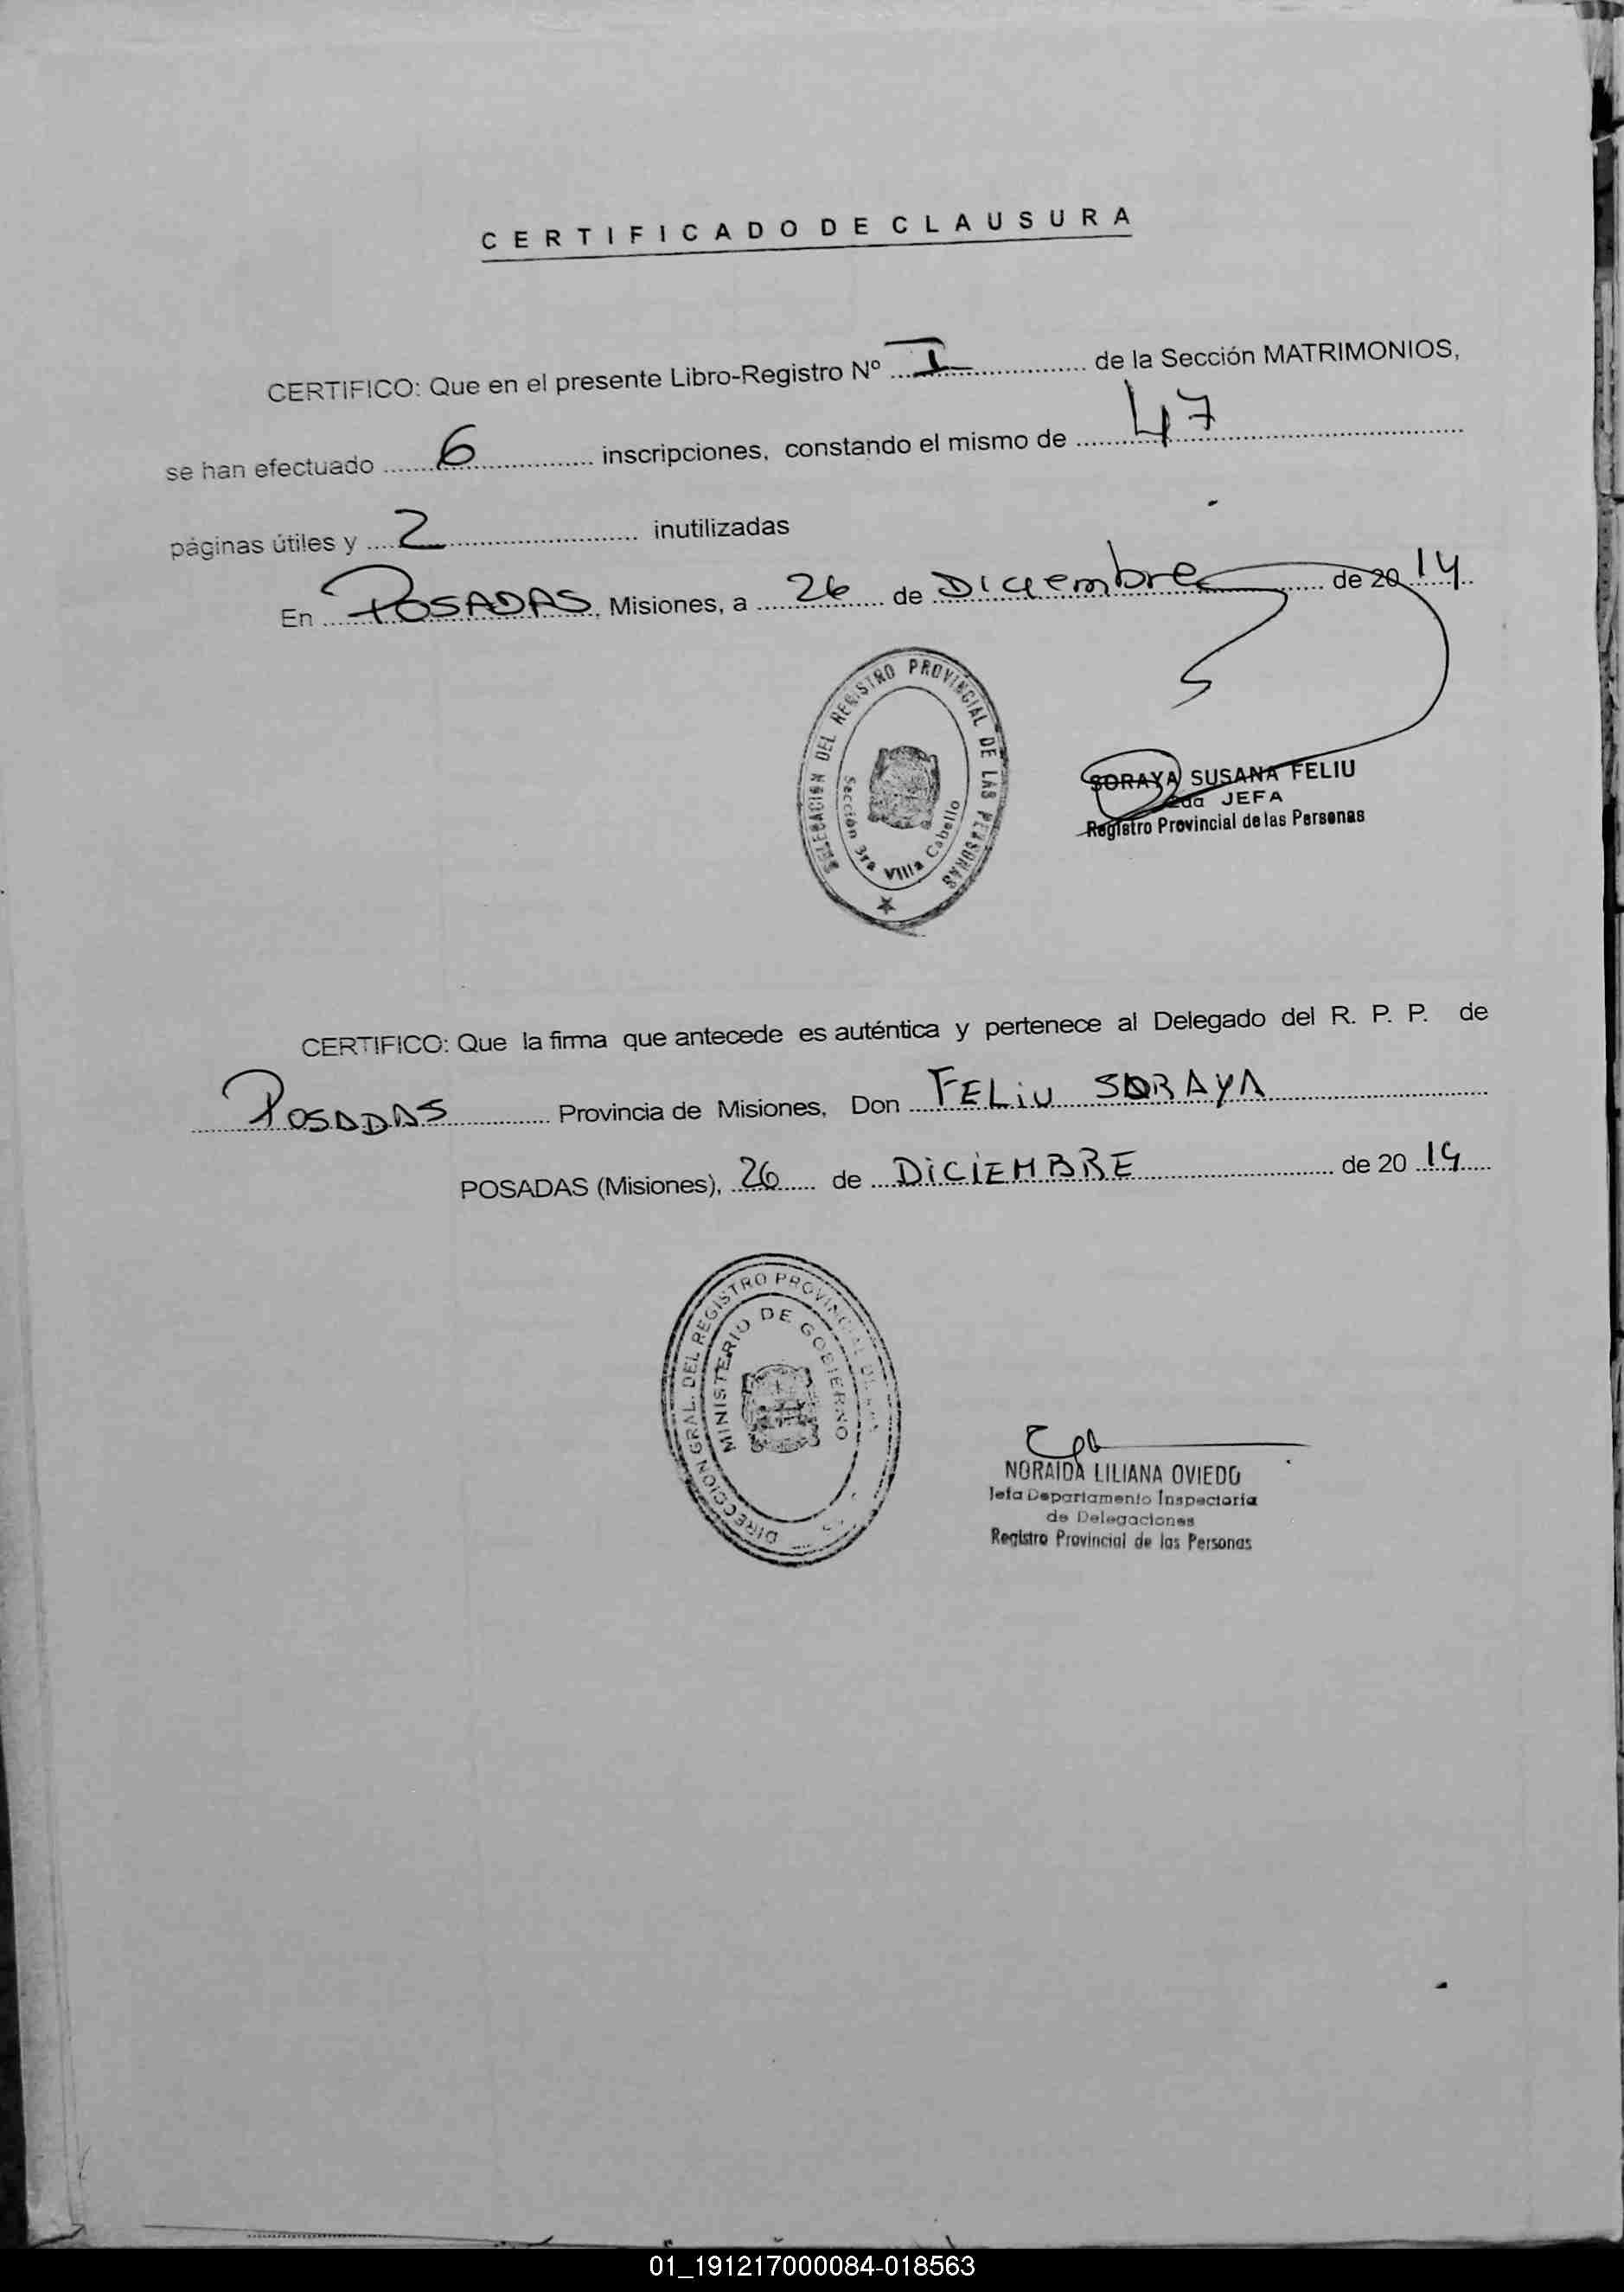 CERTIFICADO DE CLAUSURA
CERTIFICO: Que en el presente Libro-Registro Nº I de la Sección MATRIMONIOS,
se han efectuado 6 inscripciones, constando el mismo de 47
páginas útiles y 2 inutilizadas
En POSADAS, Misiones, a 26 de Diciembre de 2014
DELEGACION DEL REGISTRO PROVINCIAL DE LAS PERSONAS
Sección 3ra Villa Cabello
SORAYA SUSANA FELIU
2da JEFA
Registro Provincial de las Personas
CERTIFICO: Que la firma que antecede es auténtica y pertenece al Delegado del R. P. P. de
POSADAS Provincia de Misiones, Don FELiU SORAYA
POSADAS (Misiones), 26 de DiCiEMBRE de 2014
DIRECCION GRAL. DEL REGISTRO PROVINCIAL DE LAS
MINISTERIO DE GOBIERNO
NORAIDA LILIANA OVIEDO
Jefa Departamento Inspectoria
de Delegaciones
Registro Provincial de las Personas
01_191217000084-018563